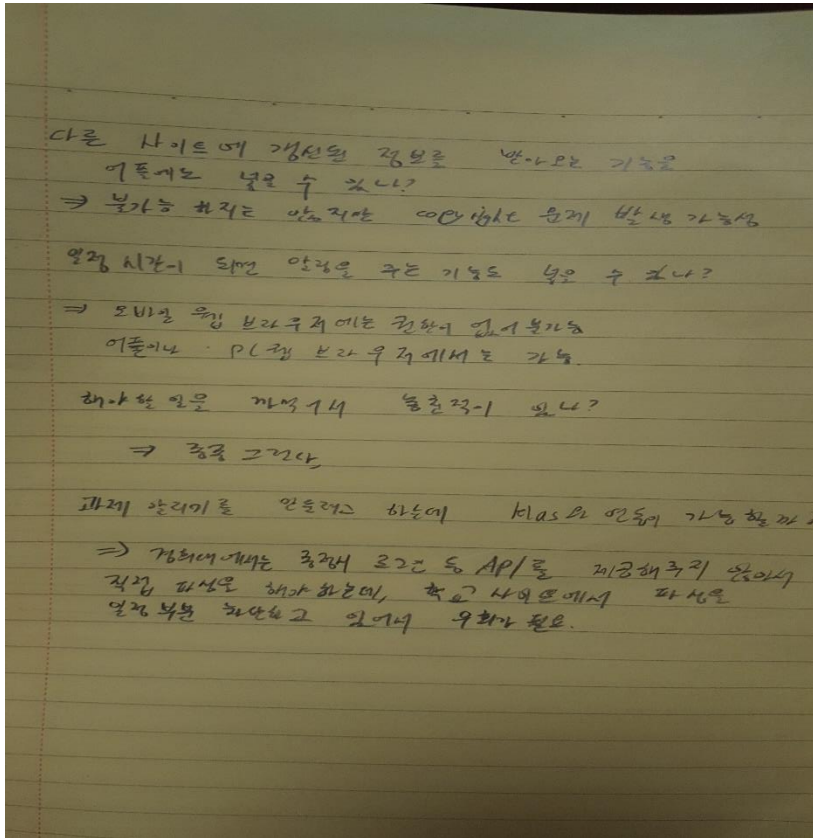 다른 사이트에 갱신된 정보를 받아오는 기능을
어플에는 넣을 수 있나?
⇒ 불가능 하지는 않지만 copyright 문제 발생 가능성
일정 시간이 되면 알람을 주는 기능도 넣을 수 있나?
⇒ 모바일 웹 브라우저에는 권한이 없어 불가능
어플이나 PC웹 브라우저에서는 가능.
해야할 일을 까먹어서 놓친적이 있나?
⇒ 종종 그런다,
과제 알리미를 만들려고 하는데 klas와 연동이 가능할까
⇒ 경희대에서는 종정시 로그인 등 API를 제공해주지 않아서
직접 파싱을 해야 하는데, 학교 사이트에서 파싱을
일정 부분 차단하고 있어서 우회가 필요.